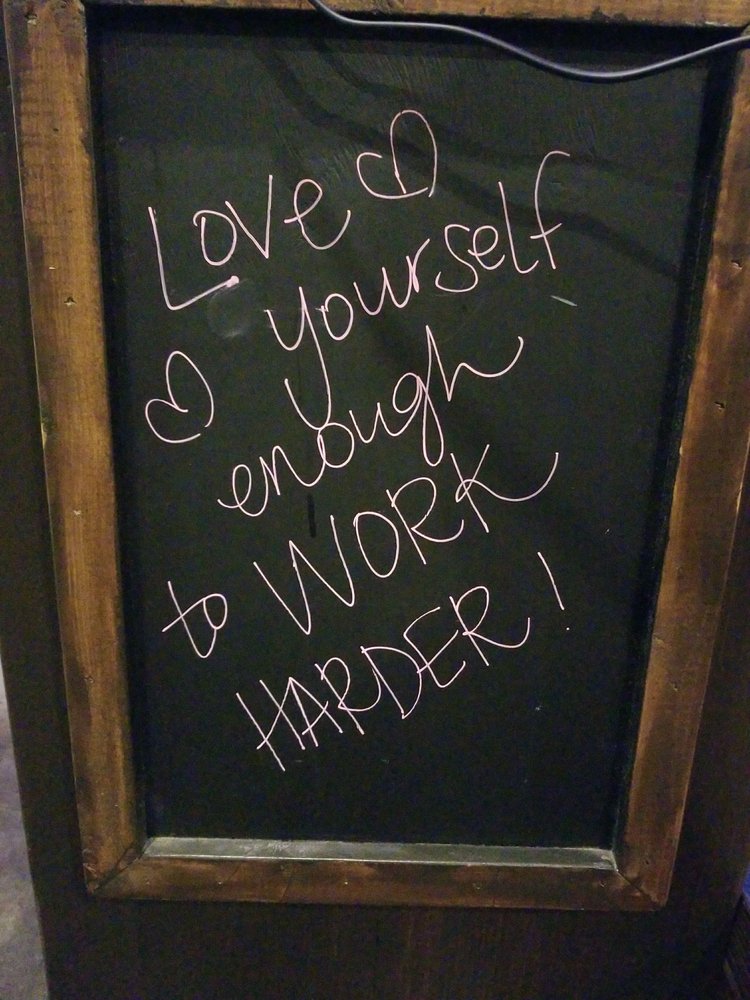 Love
yourself
enough
to WORK
HARDER!